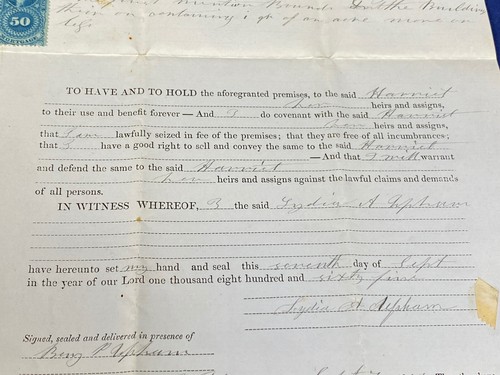 50
thereon containing of an acre more or
less
TO HAVE AND TO HOLD the aforegranted premises, to the said Harriet
her heirs and assigns,
to their use and benefit forever — And I do covenant with the said Harriet
her heirs and assigns,
that I am lawfully seized in fee of the premises; that they are free of all incumbrances;
that I have a good right to sell and convey the same to the said Harriet
— And that I will warrant
and defend the same to the said Harriet
her heirs and assigns against the lawful claims and demands
of all persons.
IN WITNESS WHEREOF, I the said Lydia A Upham
have hereunto set my hand and seal this seventh day of Sept
in the year of our Lord one thousand eight hundred and sixty five
Lydia A Upham
Signed, sealed and delivered in presence of
Benj P Upham